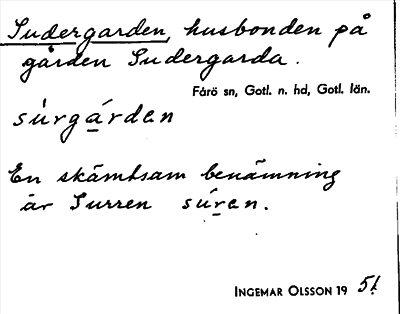 Sudergarden, husbonden på
gården Sudergarda.
Fårö sn, Gotl. n. hd, Gotl. län.
sùrgárden
En skämtsam benämning
är Surren súren.
INGEMAR OLSSON 19 51.